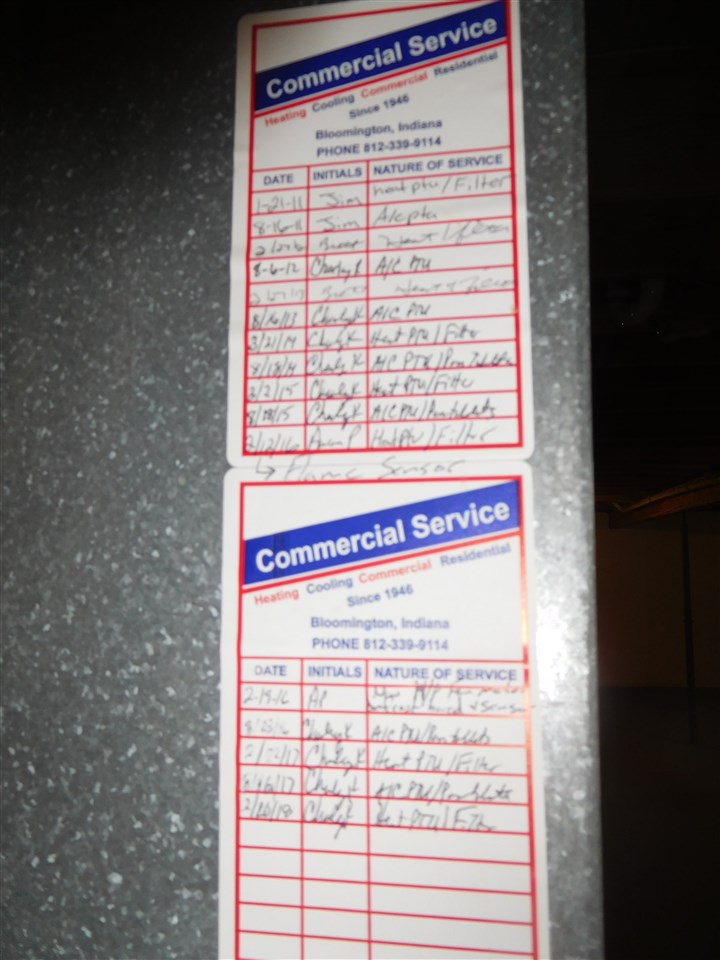 Commercial Service
Heating Cooling Commercial Residential
Since 1946
Bloomington, Indiana
PHONE 812-339-9114
DATE INITIALS NATURE OF SERVICE
1-21-11 Jim heat ptu/Filter
8-16-11 Jim A/c ptu
Heat
8-6-12 Charley K A/C PTU
8/14/13 Charley K A/C PTU
3/21/14 Charley K Heat PTU/Filter
8/18/14 Charley K A/C PTU/Pan Tablets
2/2/15 Charley K Heat PTU/Filter
8/18/15 Charley K A/C PTU/Pan tablets
2/12/16 P Heat ptu/Filter
↳ Flame Sensor
Commercial Service
Heating Cooling Commercial Residential
Since 1946
Bloomington, Indiana
PHONE 812-339-9114
DATE INITIALS NATURE OF SERVICE
2-19-16 AP
board & Sensor
Charley K A/C PTU/Pan tablets
2/22/17 Charley K Heat PTU/Filter
Charley K A/C PTU/Pan Tablets
2/20/18 Charley K Heat PTU/Filter